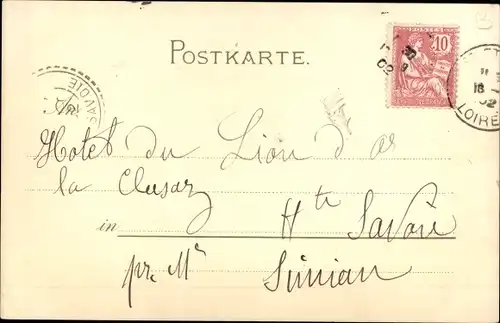 POSTKARTE.
POSTES
10
02
SAVOIE
18
02
LOIRE
Hotel du Lion d'or
la Clusaz
in Hte Savoie
pr. Mr Simian